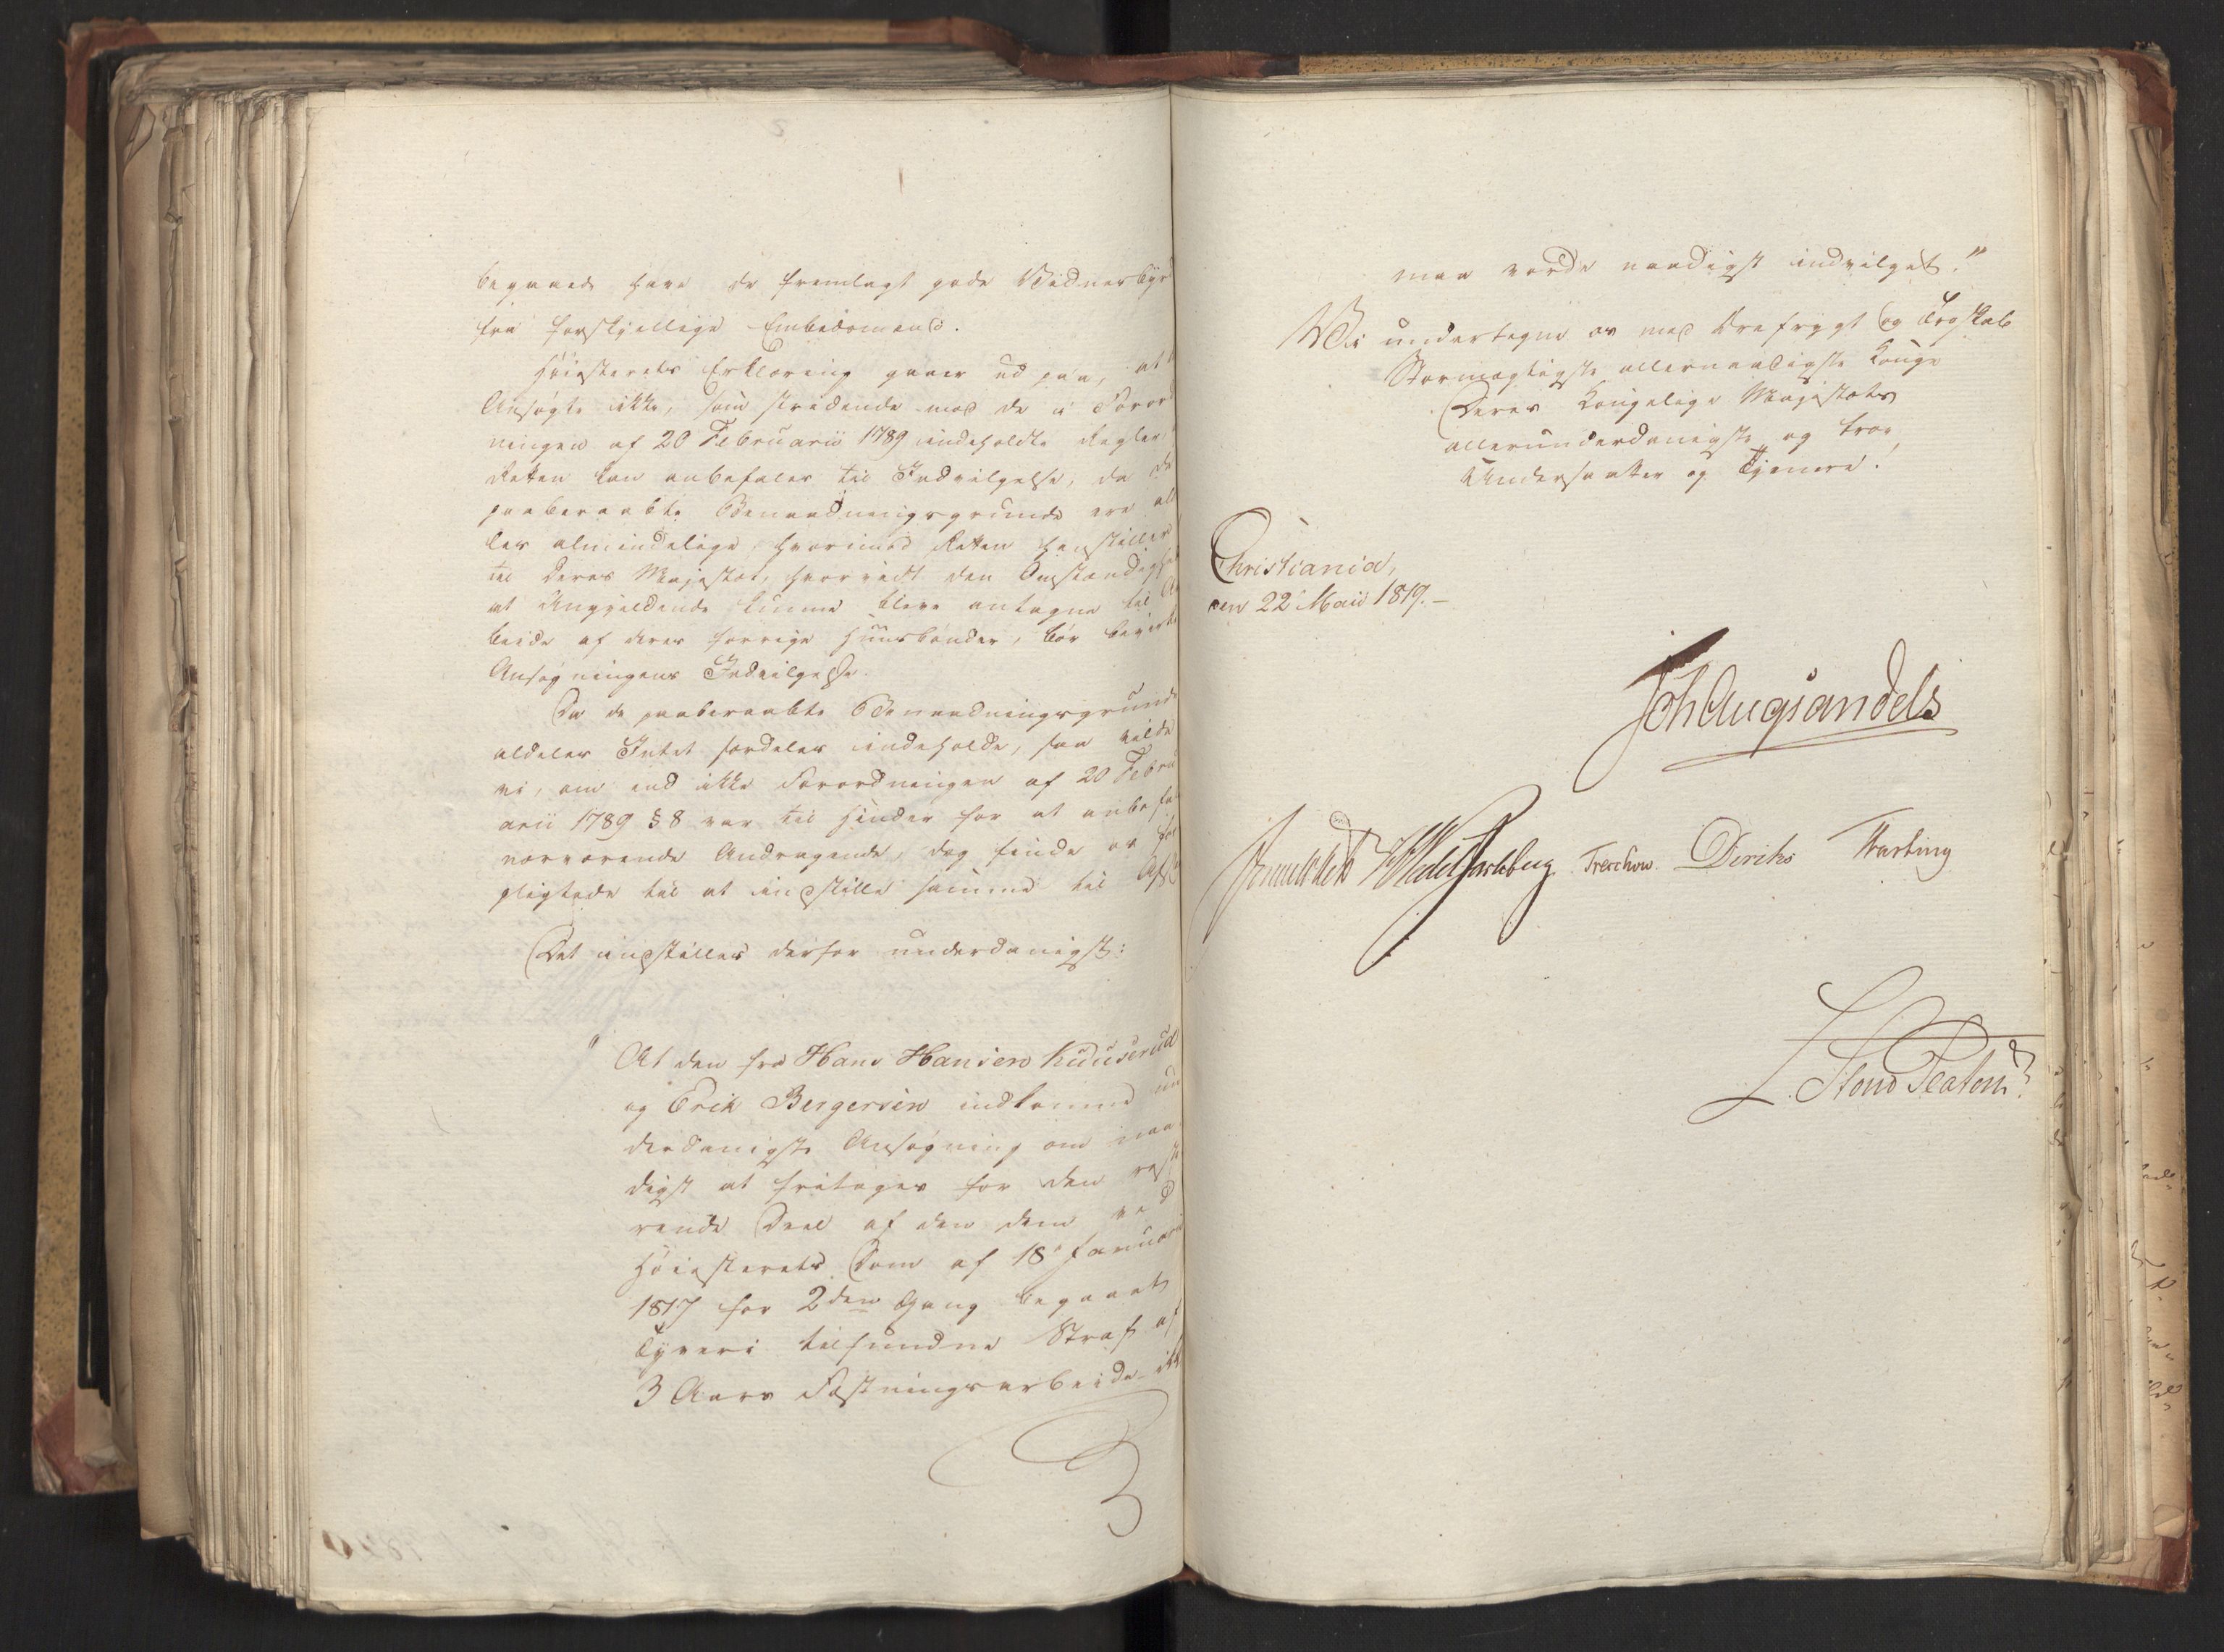 begaaede have de fremlagt gode Vidnesbyrd
fra forskjellige Embedsmænd.
Høiesterets Erklæring gaaer ud paa, at det
Ansøgte ikke, som stridende mod de i Forord
ningen af 20 Februarii 1789 indeholdte Regler,
Retten kan anbefales til Indvilgelse, da de
paaberaabte Benaadningsgrunde ere alde
les almindelige, hvorimod Retten henstiller
til Deres Majestæt, hvorvidt den Omstændighed
at Angjældende kunne blive antagne til Ar
beide af deres forrige Huusbonder, bør bevirke
Ansøgningens Indvilgelse.
Da de paaberaabte Benaadningsgrunde
aldeles Intet særdeles indeholde, saa vilde
vi, om end ikke Forordningen af 20 Febru
arii 1789 § 8 var til Hinder for at anbefale
nærværende Andragende, dog finde os for
pligtede til at indstille samme til Afslag
Det indstilles derfor underdanigst:
" At den fra Hans Hansen Kuuserud
og Erik Bergersen indkomne un
derdanigste Ansøgning om naa
digst at fritages for den reste
rende Deel af den dem ved
Høiesterets Dom af 18 Januarii
1817 for 2den Gang begaaet
Tyveri tilfundne Straf af
3 Aars Fæstningsarbeide ikke
maa vorde naadigst indvilget."
Vi undertegne os med Ærefrygt og Troskab
Stormægtigste allernaadigste Konge
Deres Kongelige Majestæts
allerunderdanigste og troe
Undersaatter og Tjenere.
Christiania,
den 22 Maii 1819.-
JohAugSandels
Sommerhielm HWedelJarlsberg Treschow. Diriks Fasting
L. Stoud Platou